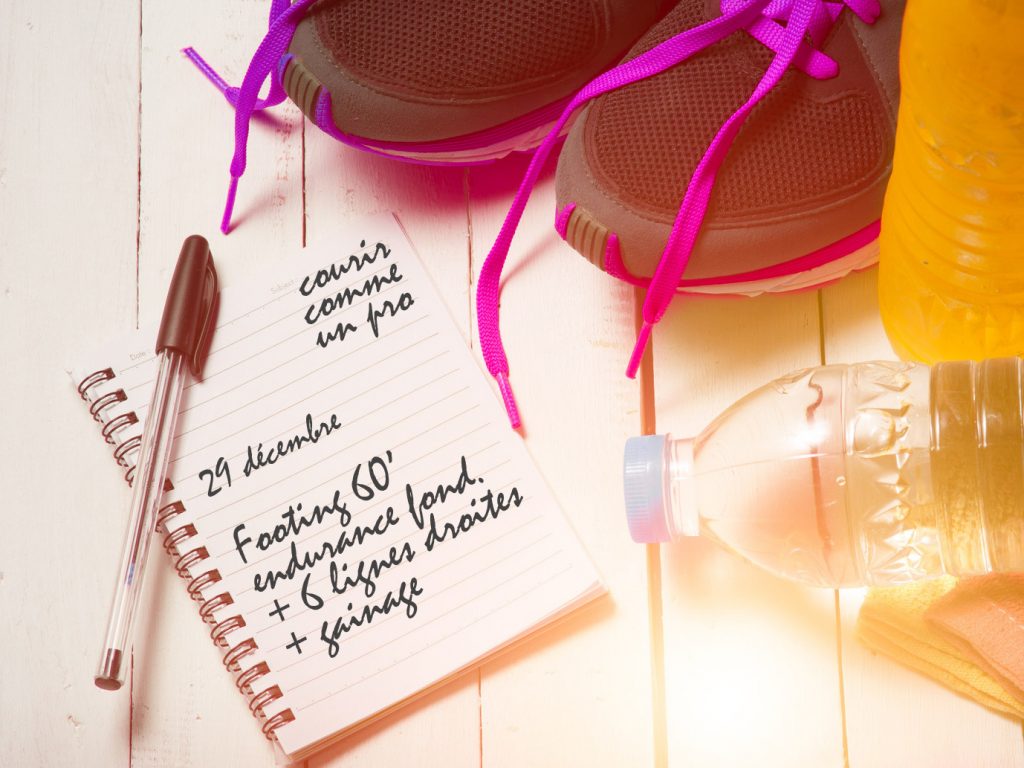 Subject
courir
comme
un pro
Date
29 décembre
Footing 60'
endurance fond.
+ 6 lignes droites
+ gainage